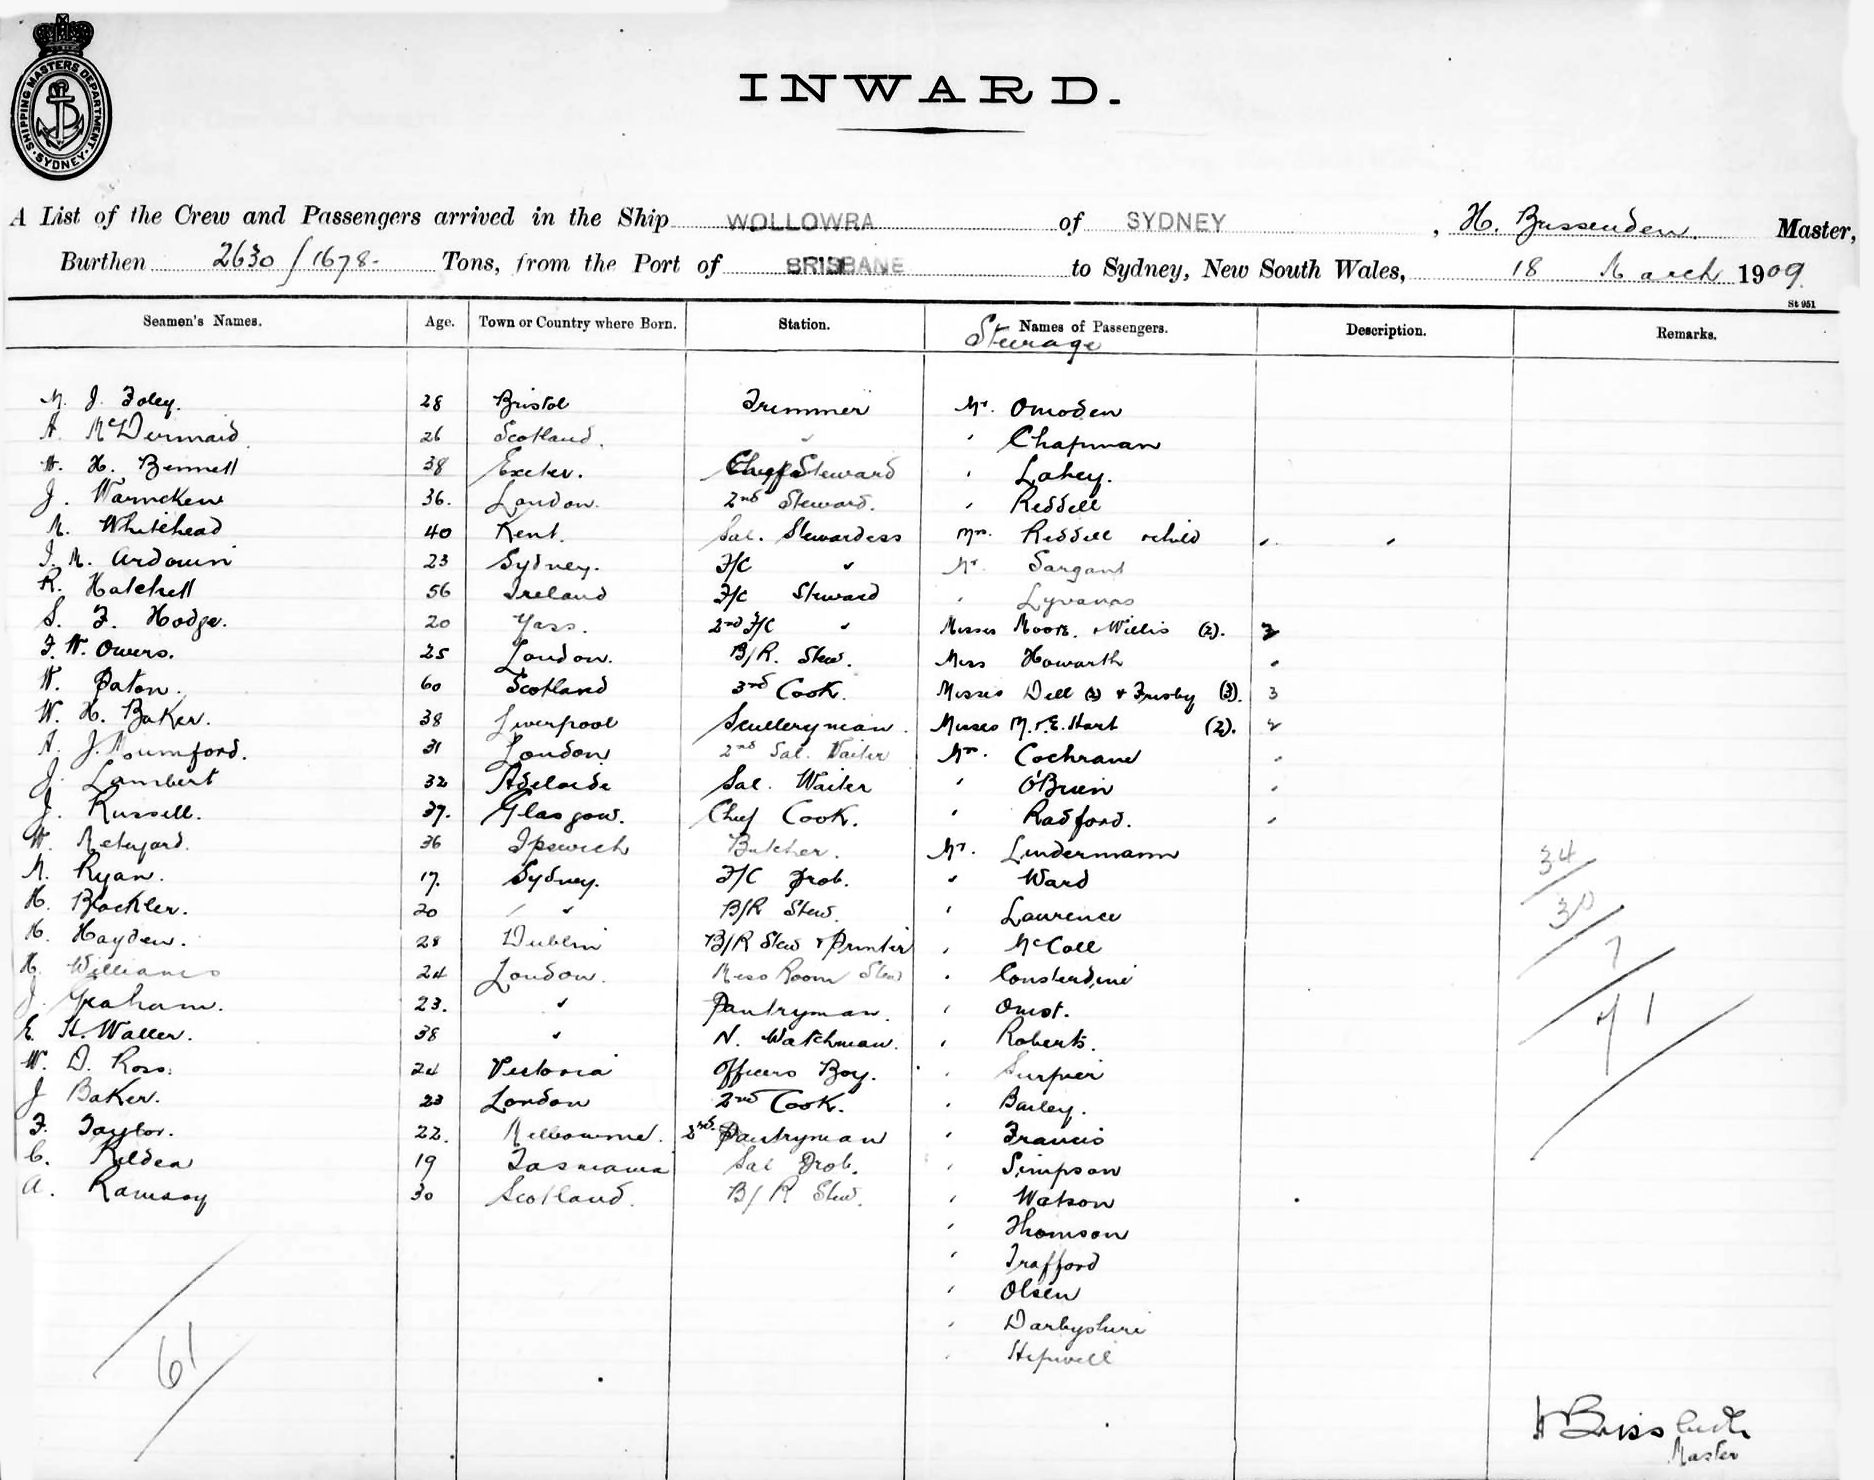 SHIPPING MASTERS DEPARTMENT. SYDNEY
INWARD.
A List of the Crew and Passengers arrived in the Ship WOLLOWRA of SYDNEY, H. Bussenden. Master,
Burthen 2630/1678- Tons, from the Port of BRISBANE to Sydney, New South Wales, 18 March 1909.
St 951
Seamen's Names. Age. Town or Country where Born. Station. Names of Passengers. Description. Remarks.
Steerage
M. J. Foley. 28 Bristol Trimmer Mr. Omoden
A. McDermaid 26 Scotland. " ' Chapman
W. H. Bennett 38 Exeter. Chief Steward ' Lahey.
J. Warncken 36. London. 2nd Steward. ' Reddell
M. Whitehead 40 Kent. Sal. Stewardess Mrs. Reddell & child
J. M. Ardouin 23 Sydney. F/C " Mr. Sargant
R. Hatchett 56 Ireland F/C Steward ' Lyvanas
S. F. Hodge. 20 Yass. 2nd F/C " Misses Moore. & Willis (2). 2
F. W. Owers. 25 London. B/R. Stew. Miss Howarth
W. Paton. 60 Scotland 3rd Cook. Misses Dell (2) & Frisby (3). 3
W. H. Baker. 38 Liverpool Sculleryman. Misses M. & E. Hart (2). 2
A. J. Mumford. 31 London 2nd Sal. Waiter Mrs. Cochrane
J. Lambert 32 Adelaide Sal. Waiter ' O'Brien
J. Russell. 37. Glasgow. Chief Cook. ' Radford.
W. Retyard. 36 Ipswich Butcher. Mr. Lindermann
M. Ryan. 17. Sydney. F/C Prob. " Ward
H. Blackler. 20 " B/R Stew. ' Laurence
H. Hayden. 28 Dublin B/R Stew & Printer ' McColl
H. Williams 24 London. Mess Room Stew ' Consterdine
J. Graham. 23. " Pantryman. ' Omot.
E. H. Waller. 38 " N. Watchman. ' Roberts.
W. D. Ross. 24 Victoria Officers Boy. '
J Baker. 23 London 2nd Cook. ' Bailey.
F. Taylor. 22. Melbourne. 2nd. Pantryman ' Francis
C. Kildea 19 Tasmania Sal Prob. ' Simpson
A. Ramsay 30 Scotland. B/R Stew. ' Watson
' Thomson
' Trafford
' Olsen
' Darbyshire
' Hipwell
34
30
7
71
61
Master